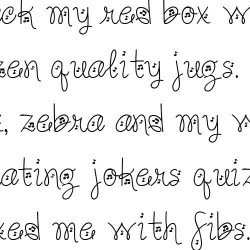 ck my red box w
zen quality jugs.
, zebra and my w
ating jokers quiz
ked me with fibs.